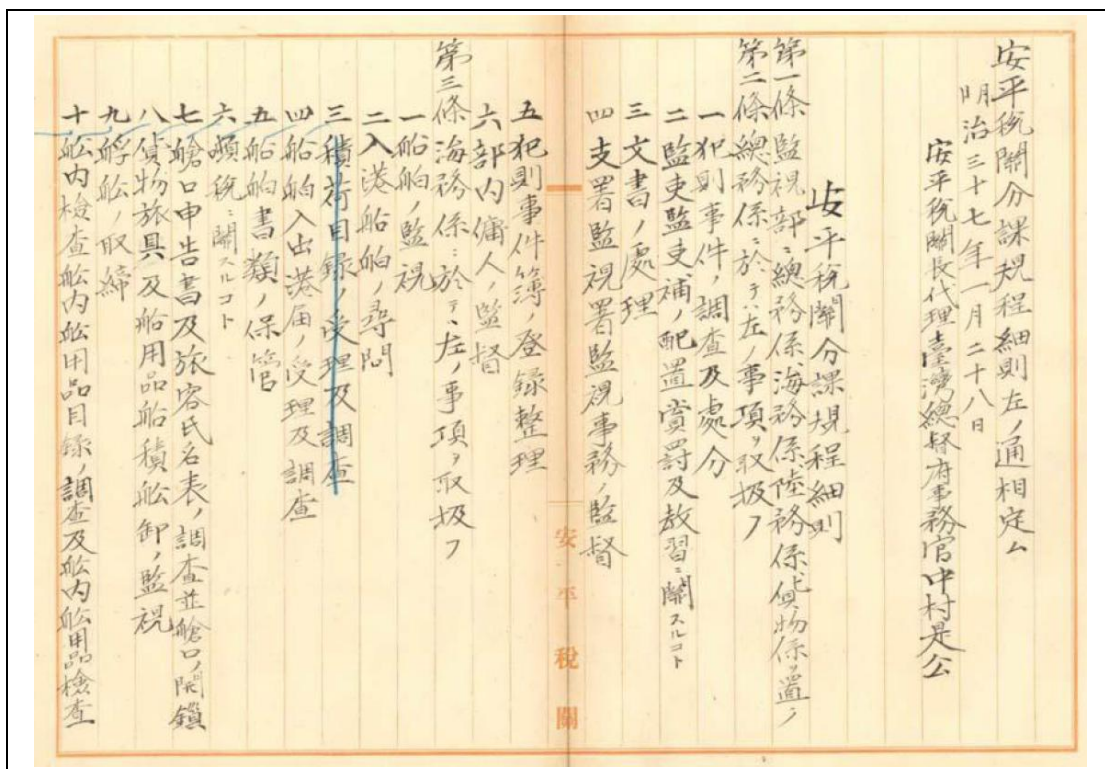 安平稅關分課規程細則左ノ通相定ム
明治三十七年一月二十八日
安平稅關長代理臺灣總督府事務官中村是公
安平稅關分課規程細則
第一條監視部ニ總務係、海務係、陸務係、貨物係ヲ置ク
第二條總務係ニ於テハ左ノ事項ヲ取扱フ
一犯則事件ノ調查及處分
二監吏監吏補ノ配置賞罰及教習ニ關スルコト
三文書ノ處理
四支署監視署監視事務ノ監督
安平稅關
五犯則事件簿ノ登錄整理
六部内傭人ノ監督
第三條海務係ニ於テハ左ノ事項ヲ取扱フ
一船舶ノ監視
二入港船舶ノ尋問
三積荷目錄ノ受理及調查
四船舶入出港届ノ受理及調查
五船舶書類ノ保管
六噸稅ニ關スルコト
七艙口申告書及旅客氏名表ノ調查並艙口ノ開鎖
八貨物旅具及船用品船積船卸ノ監視
九艀船ノ取締
十船内檢查船内船用品目錄ノ調查及船内船用品檢查